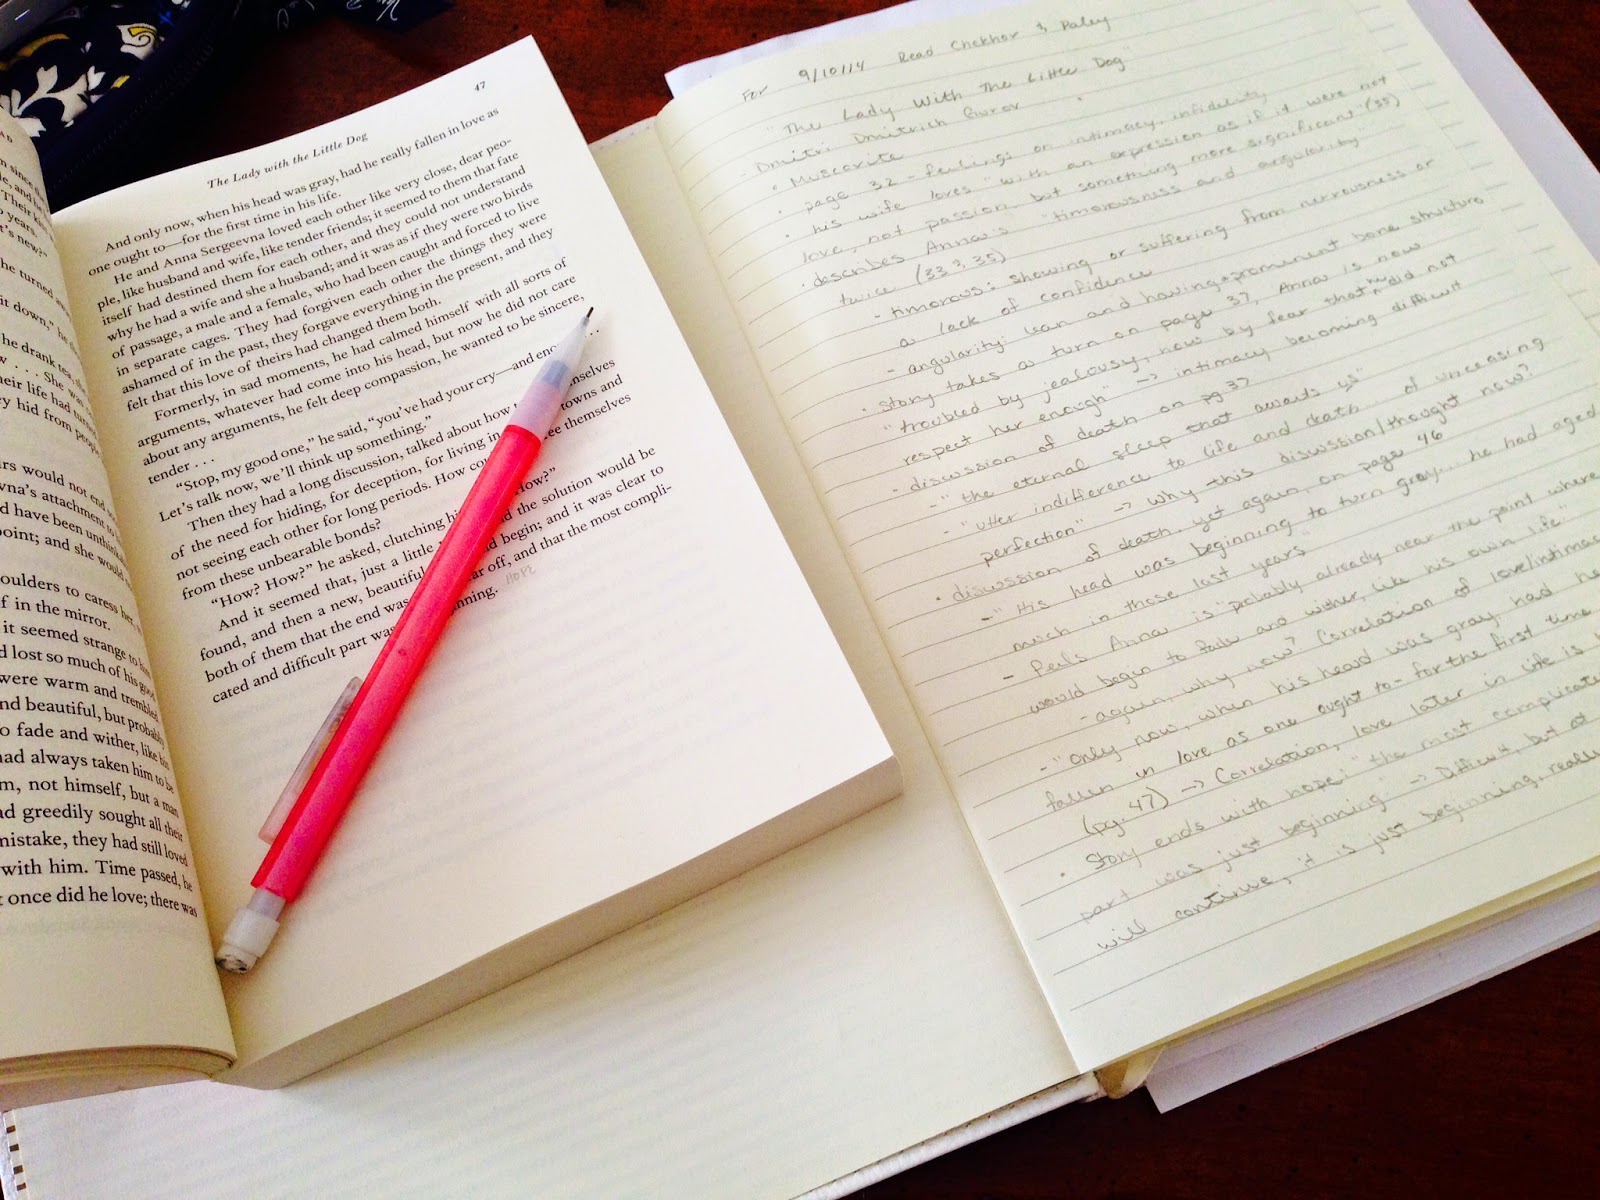 AD
n since th
le, and he
Their ki
o years.
t's new?"
he turned
it down," he
he drank tea, she
w . . . She was
heir life had turned
ey hid from people
rs would not end
vna's attachment to
d have been unthinkab
point; and she would
oulders to caress her,
f in the mirror.
it seemed strange to
d lost so much of his good
were warm and trembled
nd beautiful, but probably
o fade and wither, like his
had always taken him to be
m, not himself, but a man
ad greedily sought all their
mistake, they had still loved
with him. Time passed, he
t once did he love; there was
47
The Lady with the Little Dog
And only now, when his head was gray, had he really fallen in love as
one ought to—for the first time in his life.
He and Anna Sergeevna loved each other like very close, dear peo-
ple, like husband and wife, like tender friends; it seemed to them that fate
itself had destined them for each other, and they could not understand
why he had a wife and she a husband; and it was as if they were two birds
of passage, a male and a female, who had been caught and forced to live
in separate cages. They had forgiven each other the things they were
ashamed of in the past, they forgave everything in the present, and they
felt that this love of theirs had changed them both.
Formerly, in sad moments, he had calmed himself with all sorts of
arguments, whatever had come into his head, but now he did not care
about any arguments, he felt deep compassion, he wanted to be sincere,
tender . . .
"Stop, my good one," he said, "you've had your cry—and eno . . .
Let's talk now, we'll think up something."
Then they had a long discussion, talked about how to mselves
of the need for hiding, for deception, for living in towns and
not seeing each other for long periods. How cou ee themselves
from these unbearable bonds?
"How? How?" he asked, clutching hi How?"
And it seemed that, just a little d the solution would be
found, and then a new, beautiful d begin; and it was clear to
both of them that the end was ar off, and that the most compli-
cated and difficult part was nning.
HOPE
For 9/10/14 Read Chekhov & Paley
"The Lady With The Little Dog"
- Dmitri Dmitrich Gurov
• Muscovite
• page 32 - feelings on intimacy, infidelity
• his wife loves "with an expression as if it were not
love, not passion, but something more significant" (35)
• describes Anna's "timorousness and angularity"
twice (33 & 35)
- timorous: showing or suffering from nervousness or
a lack of confidence
- angularity: lean and having a prominent bone structure
• story takes a turn on page 37, Anna is now
"troubled by jealousy, now by fear that he did not
respect her enough" -> intimacy becoming difficult
- discussion of death on pg 37
- "the eternal sleep that awaits us"
- "utter indifference to life and death... of unceasing
perfection" -> why this discussion/thought now?
• discussion of death, yet again, on page 46
- "His head was beginning to turn gray... he had aged
much in those last years"
- feels Anna is "probably already near the point where
would begin to fade and wither, like his own life."
- again, why now? Correlation of love/intimac
- "Only now, when his head was gray, had he
fallen in love as one ought to - for the first time
(pg. 47) -> Correlation, love later in life is
• Story ends with hope: "the most complicate
part was just beginning" -> Difficult, but at
will continue, it is just beginning, really